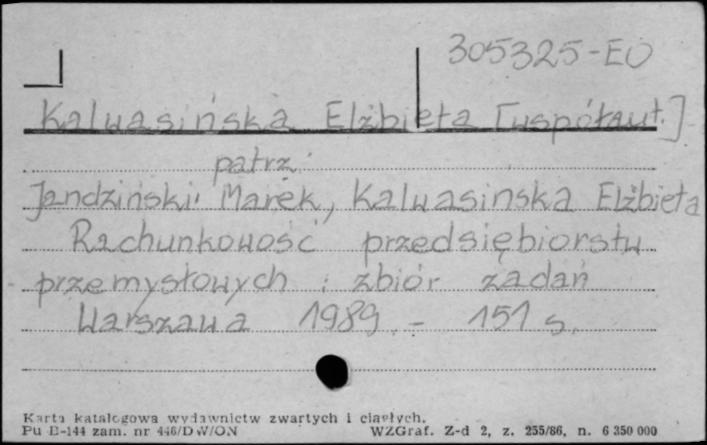 305325-EO
Kalwasińska Elżbieta [współaut.]
patrz:
Jandziński Marek, Kalwasinska Elżbieta
Rachunkowość przedsiębiorstw
przemysłowych : zbiór zadań
Warszawa 1989. - 151 s.
Karta katalogowa wydawnictw zwartych i ciągłych.
Pu B-144 zam. nr 446/DW/ON WZGraf. Z-d 2, z. 255/86, n. 6 350 000